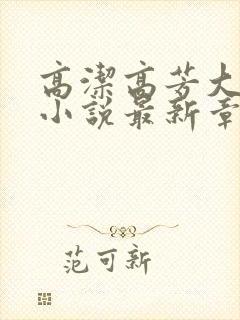 高潔高芳大
小說最新章
范可新